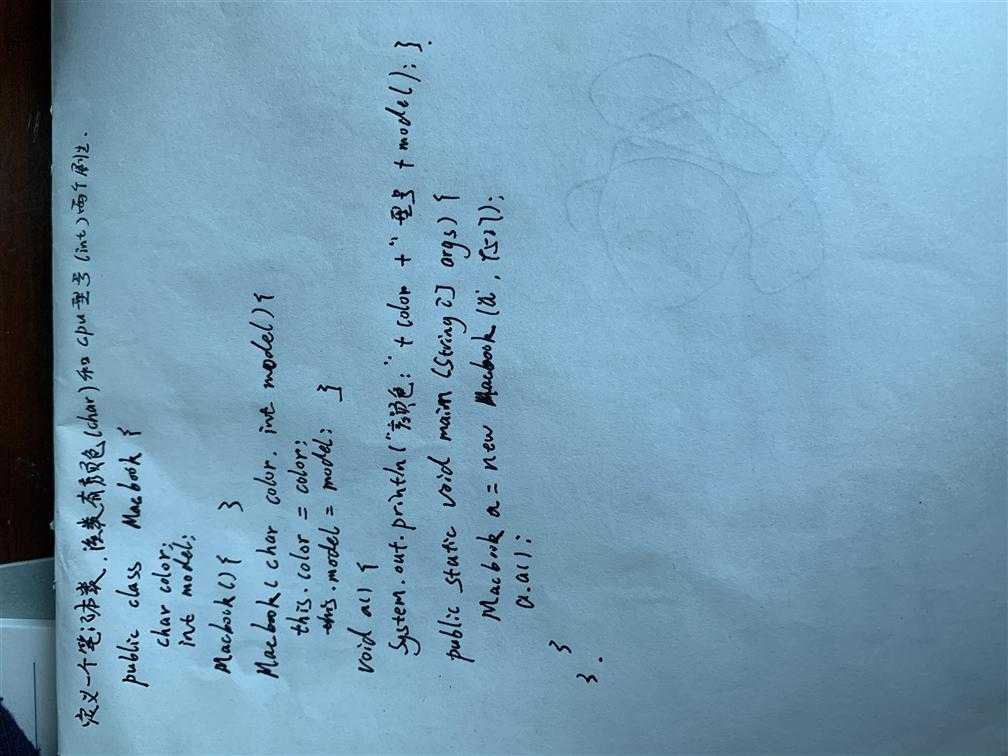 定义一个笔记本类，该类有颜色(char)和cpu型号(int)两个属性.
public class Macbook {
char color;
int model;
Macbook() { }
Macbook( char color, int model) {
this.color = color;
this.model = model; }
void a() {
System.out.println("颜色:" + color + "型号" + model); }.
public static void main (String [] args) {
Macbook a = new Macbook ('a',
a.a();
}
}.